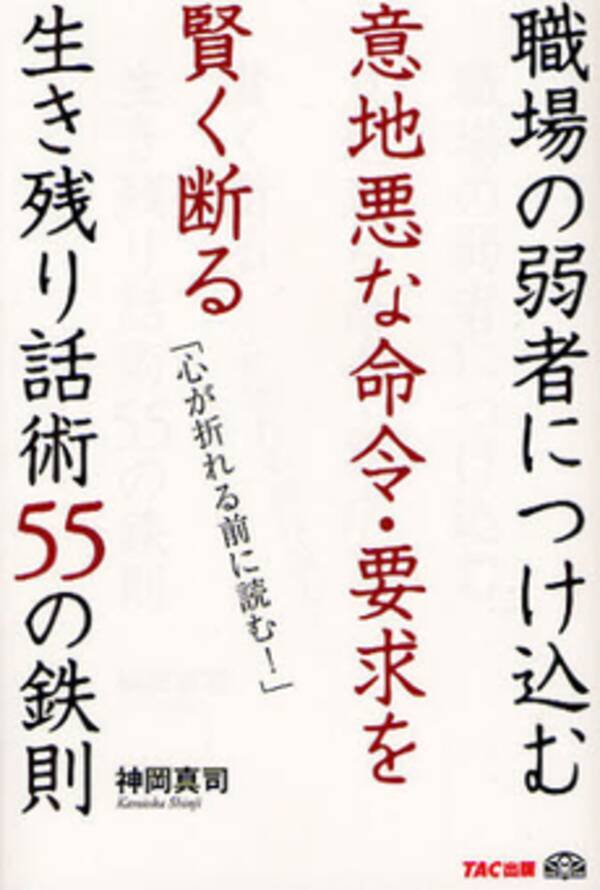 職場の弱者につけ込む
意地悪な命令・要求を
賢く断る
「心が折れる前に読む！」
生き残り話術55の鉄則
神岡真司
Kamioka Shinji
TAC出版